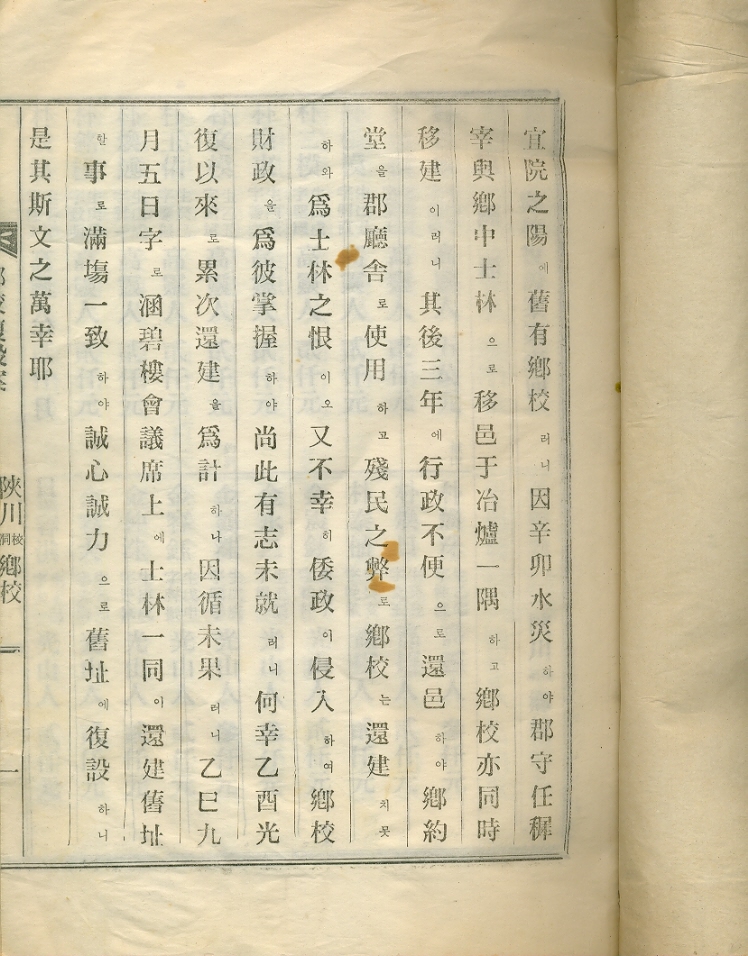 宜院之陽에舊有鄕校러니因辛卯水災하야郡守任穉
宰與鄕中士林으로移邑于冶爐一隅하고鄕校亦同時
移建이러니其後三年에行政不便으로還邑하야鄕約
堂을郡廳舍로使用하고殘民之弊로鄕校는還建치못
하와爲士林之恨이오又不幸히倭政이侵入하여鄕校
財政을爲彼掌握하야尚此有志未就러니何幸乙酉光
復以來로累次還建을爲計하나因循未果러니乙巳九
月五日字로涵碧樓會議席上에士林一同이還建舊址
한事로滿塲一致하야誠心誠力으로舊址에復設하니
是其斯文之萬幸耶
陜川校洞鄕校
一